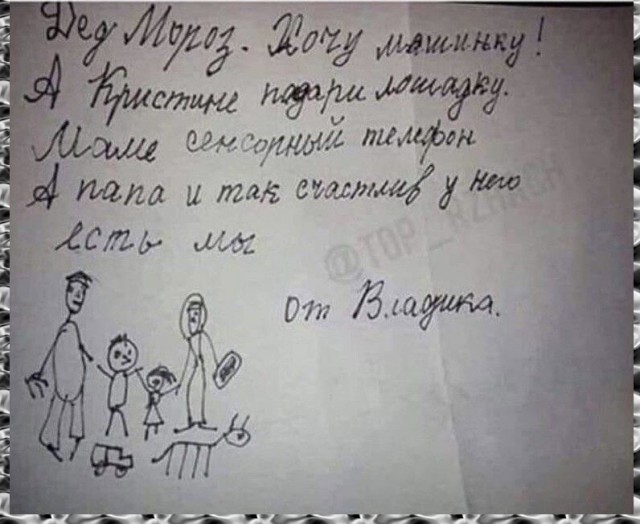 Дед Мороз. Хочу машинку!
А Кристине подари лошадку.
Маме сенсорный телефон
А папа и так счастлив у него
есть мы
от Владика.
@TOP_RZHACH